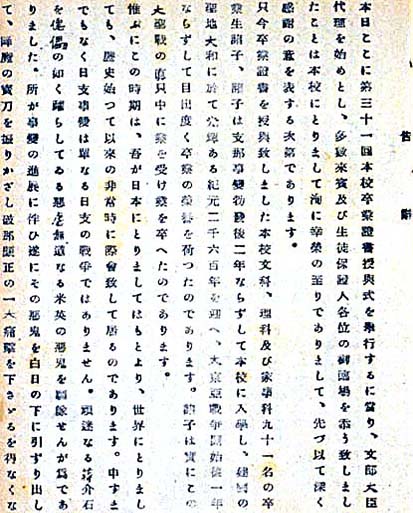 告辭
本日ここに第三十一回本校卒業證書授與式を擧行するに當り、文部大臣
代理を始めとし、多數來賓及び生徒保證人各位の御臨場を添う致しまし
たことは本校にとりまして洵に幸榮の至りでありまして、先づ以て深く
感謝の意を表する次第であります。
只今卒業證書を授與致しました本校文科、理科及び家事科九十一名の卒
業生諸子、諸子は支那事變勃發後二年ならずして本校に入學し、建國の
聖地大和に於て公輝ある紀元二千六百年を迎へ、大東亞戰爭開始後一年
ならずして目出度く卒業の榮譽を荷つたのであります。諸子は實にこの
大聖戰の眞只中に業を受け業を卒へたのであります。
惟ふにこの時期は、吾が日本にとりましてはもとより、世界にとりまし
ても、歷史始つて以來の非常時に際會致して居るのであります。申すま
でもなく日支事變は單なる日支の戰爭ではありません。頑迷なる蔣介石
を傀儡の如く躍らしてゐる惡虐無道なる米英の惡鬼を驅除せんが爲であ
りました。所が事變の進展に伴ひ遂にその惡鬼を白日の下に引ずり出し
て、降魔の寶刀を振りかざし破邪顯正の一大痛擊を下さゞるを得なくな